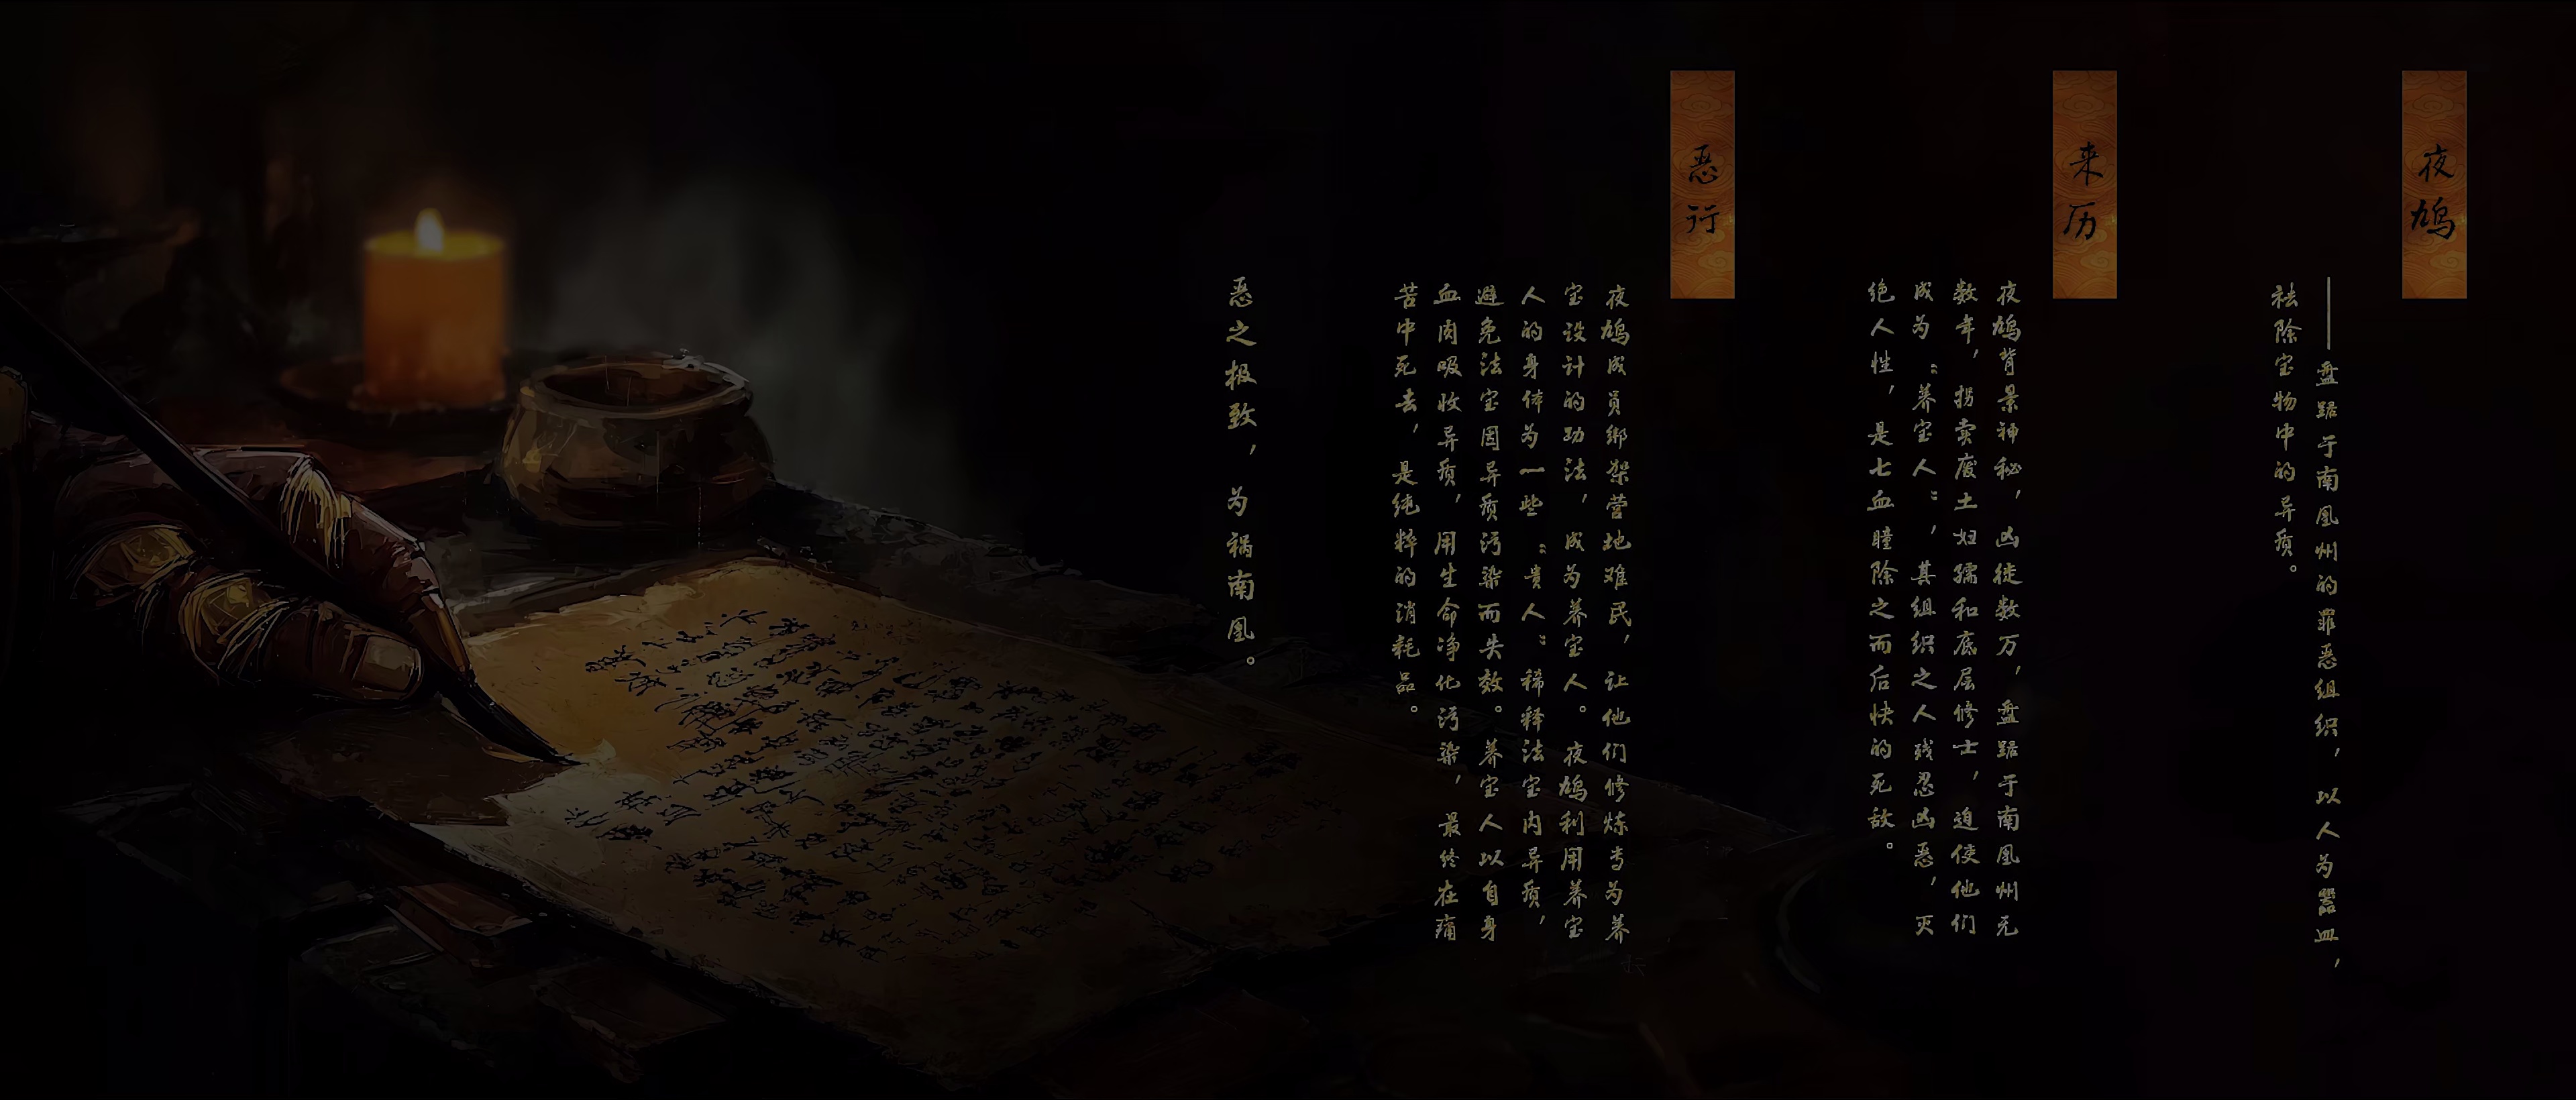 夜鸠
——盘踞于南凰州的罪恶组织，以人为器皿，
祛除宝物中的异质。
来历
夜鸠背景神秘，凶徒数万，盘踞于南凰州无
数年，拐卖废土妇孺和底层修士，迫使他们
成为“养宝人”，其组织之人残忍凶恶，灭
绝人性，是七血瞳除之而后快的死敌。
恶行
夜鸠成员绑架营地难民，让他们修炼专为养
宝设计的功法，成为养宝人。夜鸠利用养宝
人的身体为一些“贵人”稀释法宝内异质，
避免法宝因异质污染而失效。养宝人以自身
血肉吸收异质，用生命净化污染，最终在痛
苦中死去，是纯粹的消耗品。
恶之极致，为祸南凰。